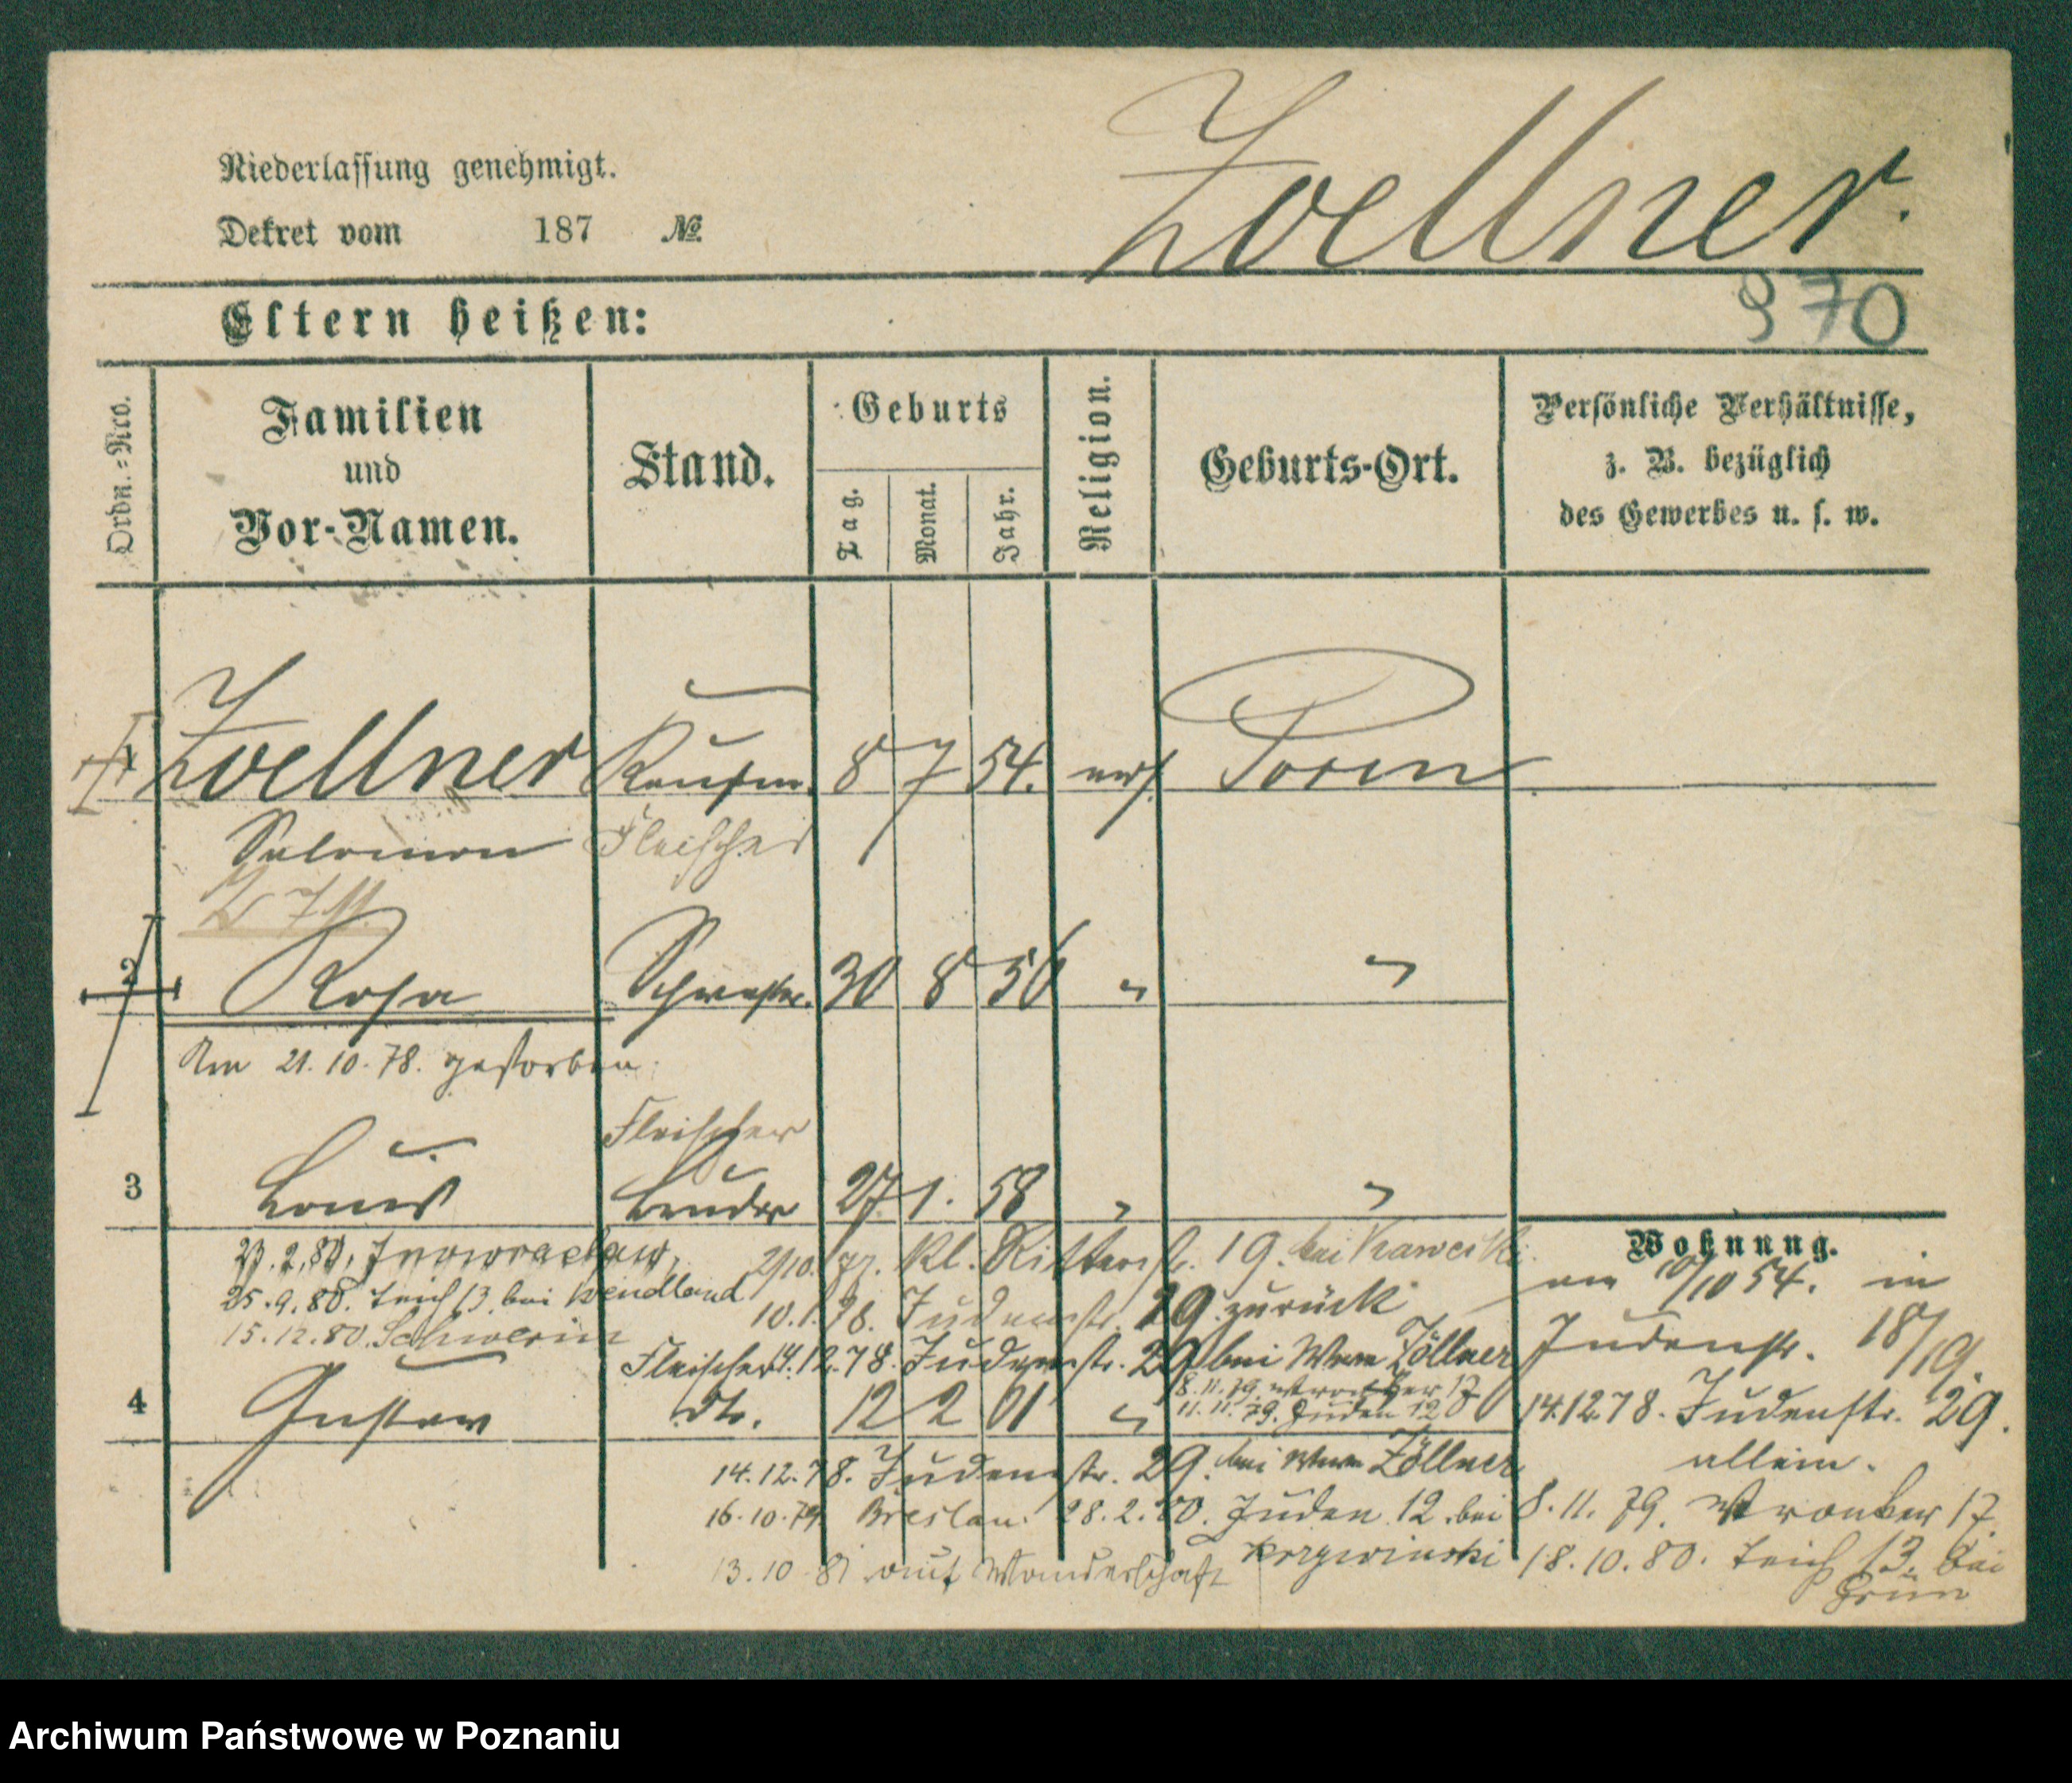 Niederlassung genehmigt.
Dekret vom 187 №
Zoellner.
Eltern heißen:
970
Ordn.-Nro.
Familien
und
Vor-Namen.
Stand.
Geburts
Tag.
Monat.
Jahr.
Religion.
Geburts-Ort.
Persönliche Verhältnisse,
z. B. bezüglich
des Gewerbes u. s. w.
1 Zoellner Kaufm. 8 7 54. mos. Posen
Salomon Fleischer
2 Rosa Schwester. 30 8 56 " "
Am 21.10.78. gestorben.
Fleischer
3 Louis Bruder 27 1. 58 " "
23.2.80. Inowraclaw, 2/10. Kl. Ritterstr. 19. bei
25.9.80. Teich 13. bei Wendland
10.1.78. Judenstr. 29. zurück
15.12.80. Schwerin
Fleischer 14.12.78. Judenstr. 29 bei Wwe Zöllner
8.11.79. Wronker 17
11.11.79. Juden 12
4 Gustav dto. 12 2 61 "
14.12.78. Judenstr. 29. bei Wwe Zöllner
16.10.79. Breslau. 28.2.80. Juden 12. bei
13.10.81 auf Wanderschaft
Wohnung.
am /10 54. in
Judenstr. 18/19.
14.12.78. Judenstr. 29.
allein.
8.11.79. Wronker 17
18.10.80. Teich 13. bei
Grün
Archiwum Państwowe w Poznaniu